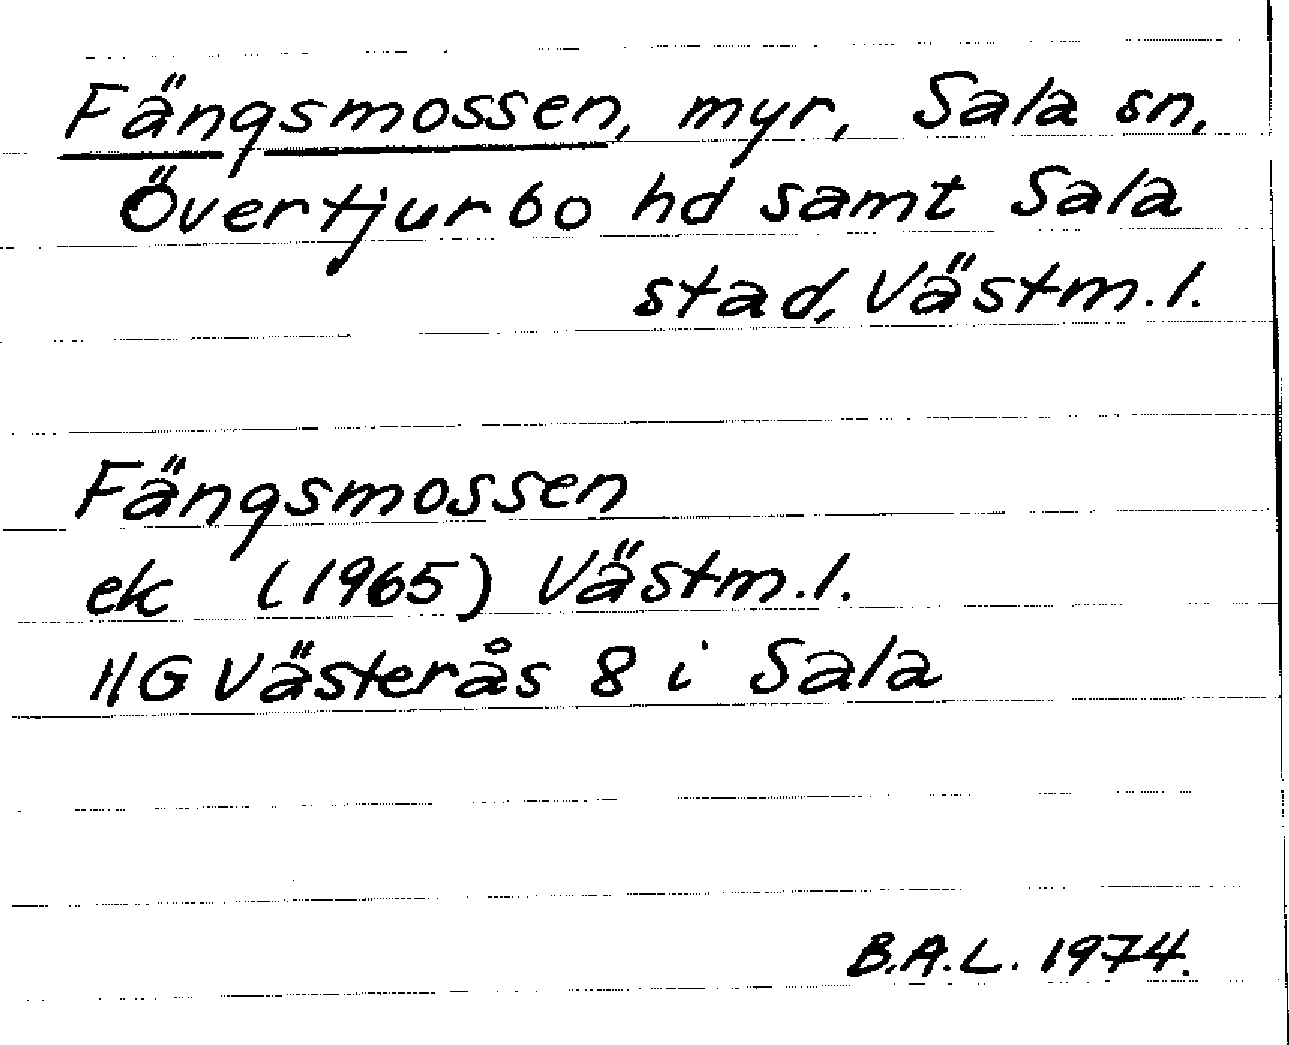 Fängsmossen, myr, Sala sn,
Övertjurbo hd samt Sala
stad, Västm. l.
Fängsmossen
ek (1965) Västm. l.
11G Västerås 8 i Sala
B.A.L. 1974.